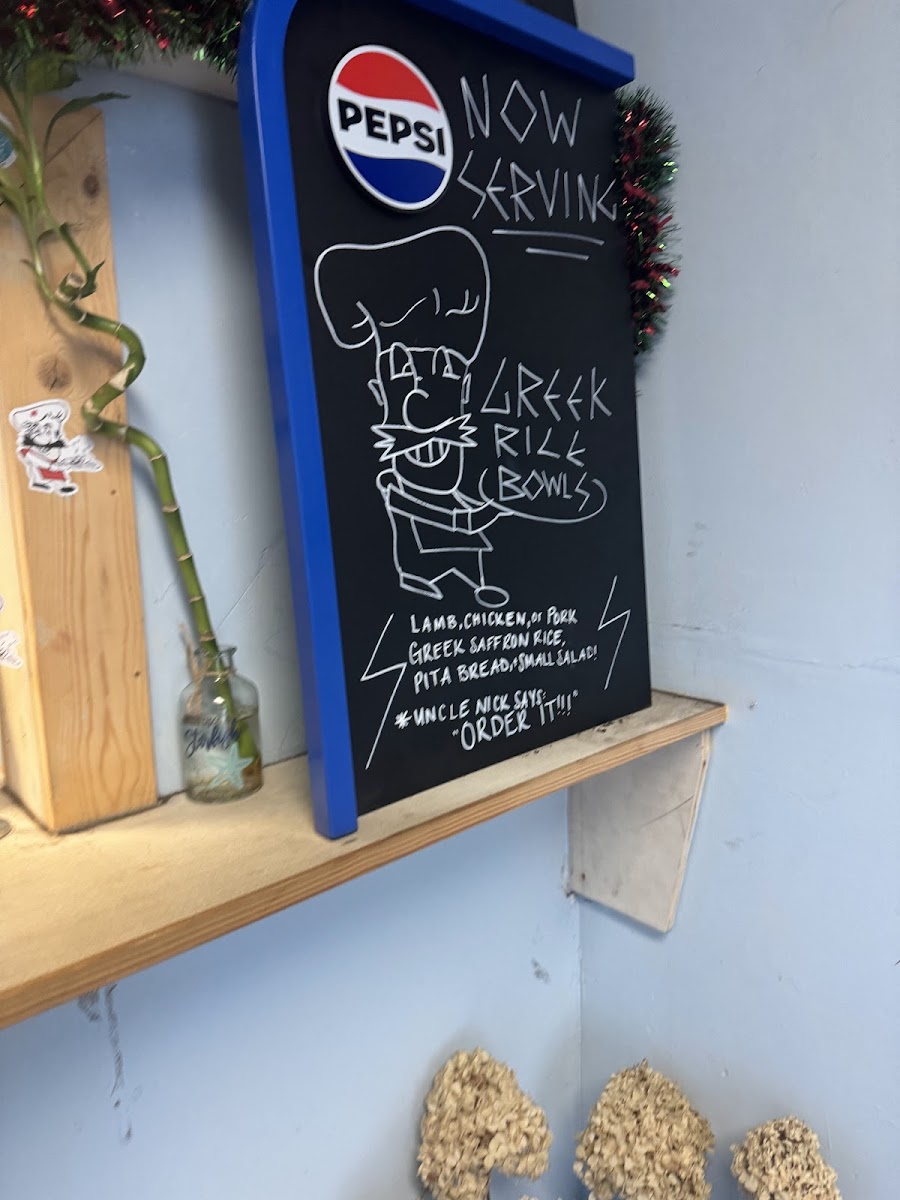 PEPSI
NOW
SERVING
GREEK
RICE
BOWLS
LAMB, CHICKEN, or PORK
GREEK SAFFRON RICE,
PITA BREAD, + SMALL SALAD!
* UNCLE NICK SAYS:
"ORDER IT!!!"